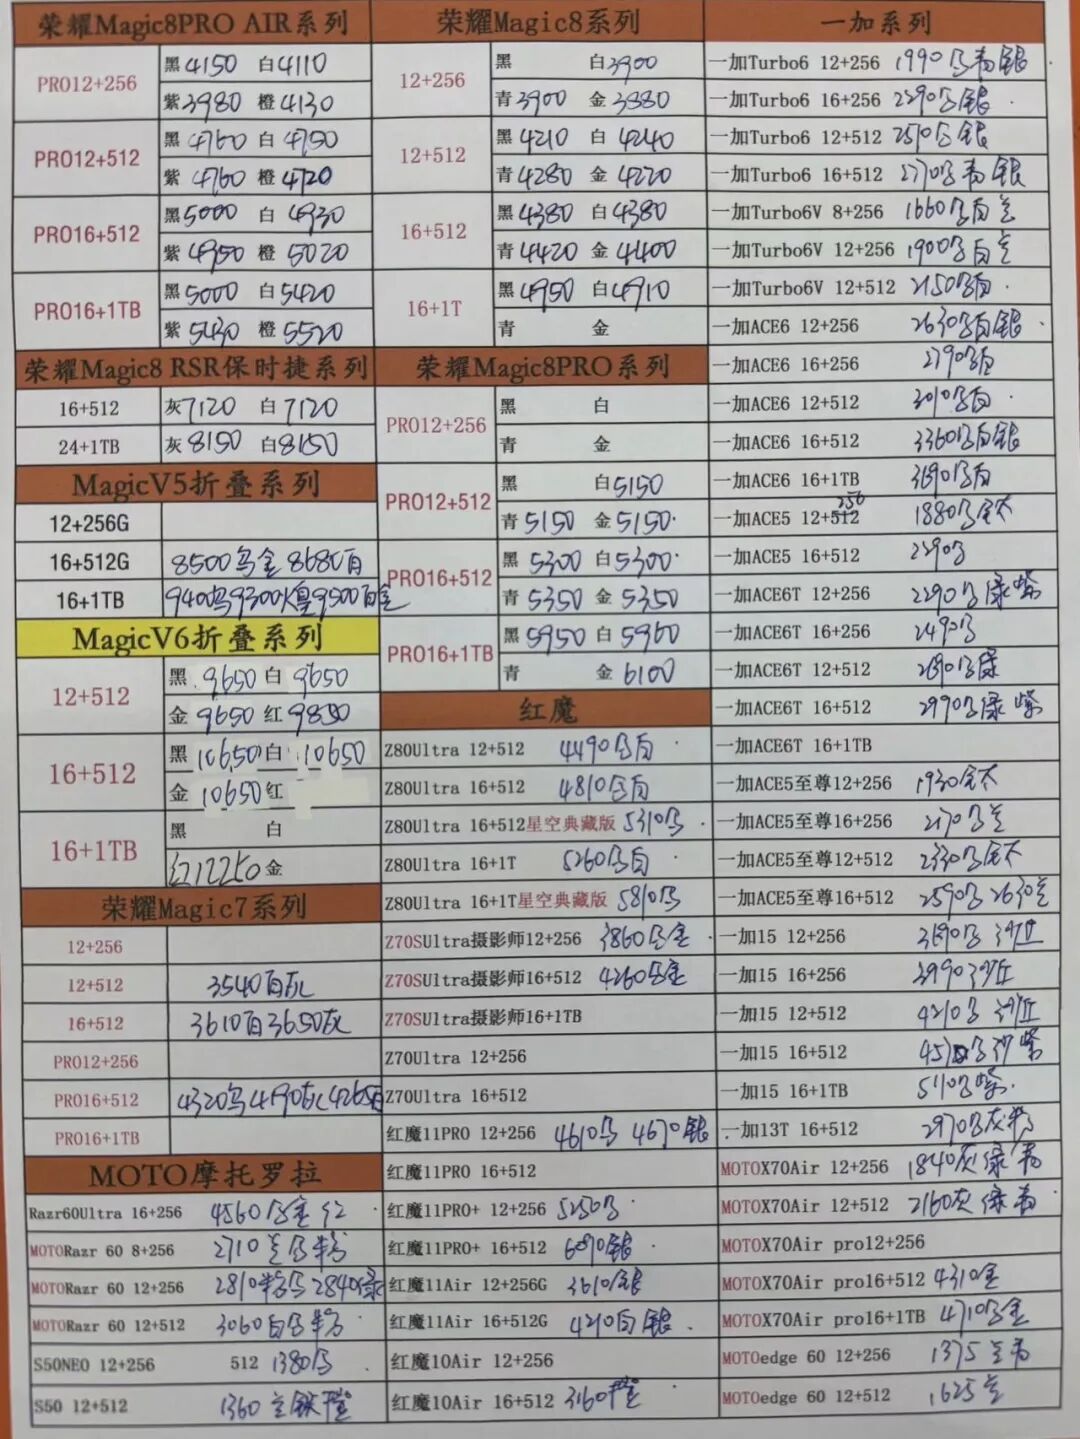 荣耀Magic8PRO AIR系列
PRO12+256 黑4150 白4110
紫3980 橙4130
PRO12+512 黑4760 白4750
紫4760 橙4720
PRO16+512 黑5000 白4930
紫4950 橙5020
PRO16+1TB 黑5000 白5420
紫5430 橙5520
荣耀Magic8 RSR保时捷系列
16+512 灰7120 白7120
24+1TB 灰8150 白8150
MagicV5折叠系列
12+256G
16+512G 8500乌金8680白
16+1TB 9400乌9300 9500白金
MagicV6折叠系列
12+512 黑9650 白9650
金9650 红9850
16+512 黑10650 白10650
金10650 红
16+1TB 黑 白
红12250 金
荣耀Magic7系列
12+256
12+512 3540白灰
16+512 3610白3650灰
PRO12+256
PRO16+512 4320乌4190灰4265白
PRO16+1TB
MOTO摩托罗拉
Razr60Ultra 16+256 4560乌金红
MOTORazr 60 8+256 2710兰乌粉
MOTORazr 60 12+256 2810粉乌2840绿
MOTORazr 60 12+512 3060白乌粉
S50NEO 12+256 512 1380乌
S50 12+512 1360兰
荣耀Magic8系列
12+256 黑 白3900
青3900 金3880
12+512 黑4210 白4240
青4280 金4220
16+512 黑4380 白4380
青4420 金4400
16+1T 黑4950 白4910
青 金
荣耀Magic8PRO系列
PRO12+256 黑 白
青 金
PRO12+512 黑 白5150
青5150 金5150
PRO16+512 黑5300 白5300
青5350 金5350
PRO16+1TB 黑5950 白5960
青 金6100
红魔
Z80Ultra 12+512 4490乌白
Z80Ultra 16+512 4810乌白
Z80Ultra 16+512星空典藏版 5310乌
Z80Ultra 16+1T 5260乌白
Z80Ultra 16+1T星空典藏版 5810乌
Z70SUltra摄影师12+256 3860乌金
Z70SUltra摄影师16+512 4260乌金
Z70SUltra摄影师16+1TB
Z70Ultra 12+256
Z70Ultra 16+512
红魔11PRO 12+256 4610乌 4670银
红魔11PRO 16+512
红魔11PRO+ 12+256 5250乌
红魔11PRO+ 16+512 6090银
红魔11Air 12+256G 3610银
红魔11Air 16+512G 4210白银
红魔10Air 12+256
红魔10Air 16+512 3160橙
一加系列
一加Turbo6 12+256 1990乌青银
一加Turbo6 16+256 2290乌银
一加Turbo6 12+512 2510乌银
一加Turbo6 16+512 2770乌青银
一加Turbo6V 8+256 1660乌白兰
一加Turbo6V 12+256 1900乌白兰
一加Turbo6V 12+512 2150乌白
一加ACE6 12+256 2630乌白银
一加ACE6 16+256 2790乌白
一加ACE6 12+512 3010乌白
一加ACE6 16+512 3360乌白银
一加ACE6 16+1TB 3690乌白
一加ACE5 12+512 256 1880乌钛
一加ACE5 16+512 2290乌
一加ACE6T 12+256 2290乌绿紫
一加ACE6T 16+256 2490乌
一加ACE6T 12+512 2690乌绿
一加ACE6T 16+512 2990乌绿紫
一加ACE6T 16+1TB
一加ACE5至尊12+256 1930钛
一加ACE5至尊16+256 2170乌兰
一加ACE5至尊12+512 2330乌钛
一加ACE5至尊16+512 2590乌 2630兰
一加15 12+256 3690乌 沙丘
一加15 16+256 3990沙丘
一加15 12+512 4210乌 沙丘
一加15 16+512 乌沙紫
一加15 16+1TB 5110乌紫
一加13T 16+512 2970乌灰粉
MOTOX70Air 12+256 1840灰绿青
MOTOX70Air 12+512 2160灰绿青
MOTOX70Air pro12+256
MOTOX70Air pro16+512 4310金
MOTOX70Air pro16+1TB 4710乌金
MOTOedge 60 12+256 1375兰青
MOTOedge 60 12+512 1625兰